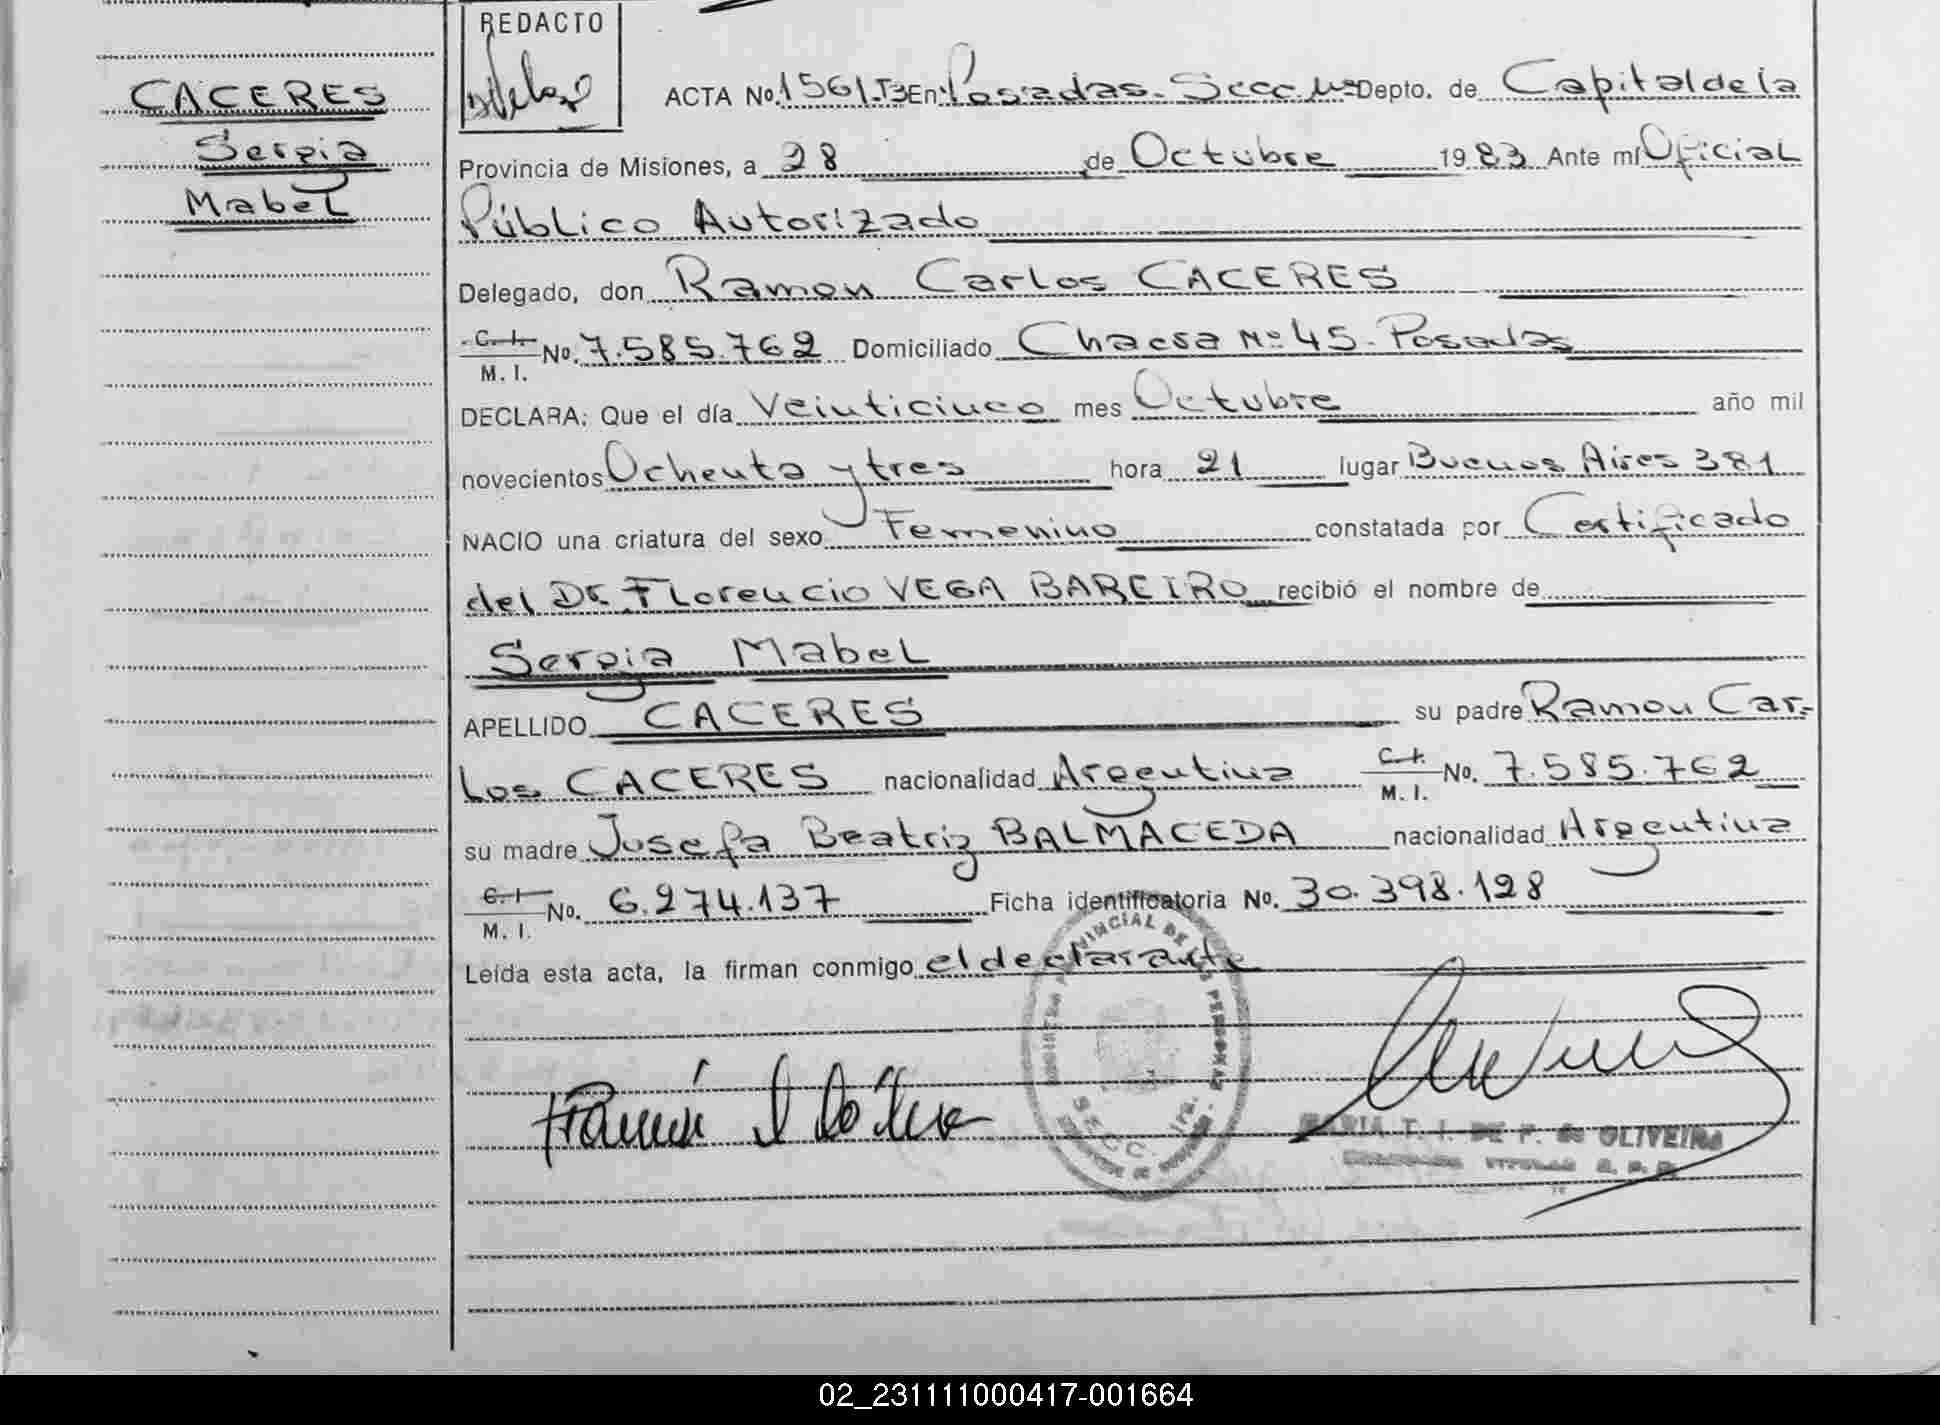 REDACTO
CACERES
Sergia
Mabel
ACTA No. 1561.T3 En Posadas. Secc. Depto. de Capital de la
Provincia de Misiones, a 28 de Octubre 1983 Ante mí Oficial
Público Autorizado
Delegado, don Ramon Carlos CACERES
C. I. M. I. No. 7.585.762 Domiciliado Chacra Nº 45. Posadas
DECLARA: Que el día Veinticinco mes Octubre año mil
novecientos Ochenta y tres hora 21 lugar Buenos Aires 381
NACIO una criatura del sexo Femenino constatada por Certificado
del Dr. Florencio VEGA BAREIRO recibió el nombre de
Sergia Mabel
APELLIDO CACERES su padre Ramon Car-
los CACERES nacionalidad Argentina C. I. M. I. No. 7.585.762
su madre Josefa Beatriz BALMACEDA nacionalidad Argentina
C. I. M. I. No. 6.274.137 Ficha identificatoria No. 30.398.128
Leída esta acta, la firman conmigo el declarante
MARIA T. I. DE F. de OLIVEIRA
02_231111000417-001664